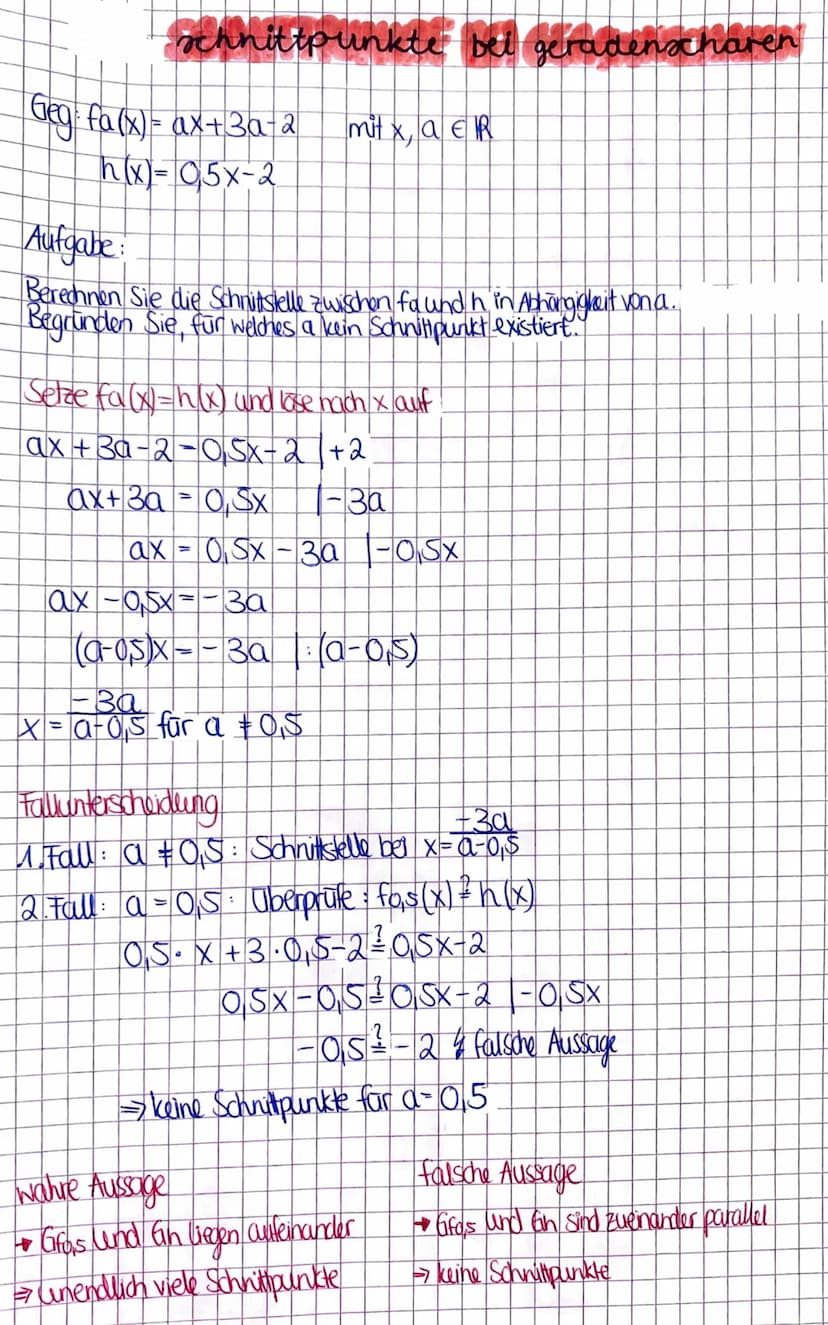 schnittpunkte bei geradenscharen
Geg: fa(x) = ax+3a-2 mit x, a ∈ ℝ
h(x) = 0,5x-2
Aufgabe:
Berechnen Sie die Schnittstelle zwischen fa und h in Abhängigkeit von a.
Begründen Sie, für welches a kein Schnittpunkt existiert.
Setze fa(x)=h(x) und löse nach x auf
ax+3a-2=0,5x-2 |+2
ax+3a = 0,5x |-3a
ax = 0,5x-3a |-0,5x
ax-0,5x=-3a
(a-0,5)x=-3a |:(a-0,5)
x = -3a/a-0,5 für a ≠ 0,5
Fallunterscheidung
1.Fall: a ≠ 0,5: Schnittstelle bei x= -3a/a-0,5
2.Fall: a = 0,5: Überprüfe: f0,5(x) ≟ h(x)
0,5·x+3·0,5-2 ≟ 0,5x-2
0,5x-0,5 ≟ 0,5x-2 |-0,5x
-0,5 ≟ -2 ↯ falsche Aussage
⇒ keine Schnittpunkte für a=0,5
wahre Aussage
→ Gf0,5 und Gh liegen aufeinander
⇒ unendlich viele Schnittpunkte
falsche Aussage
→ Gf0,5 und Gh sind zueinander parallel
⇒ keine Schnittpunkte